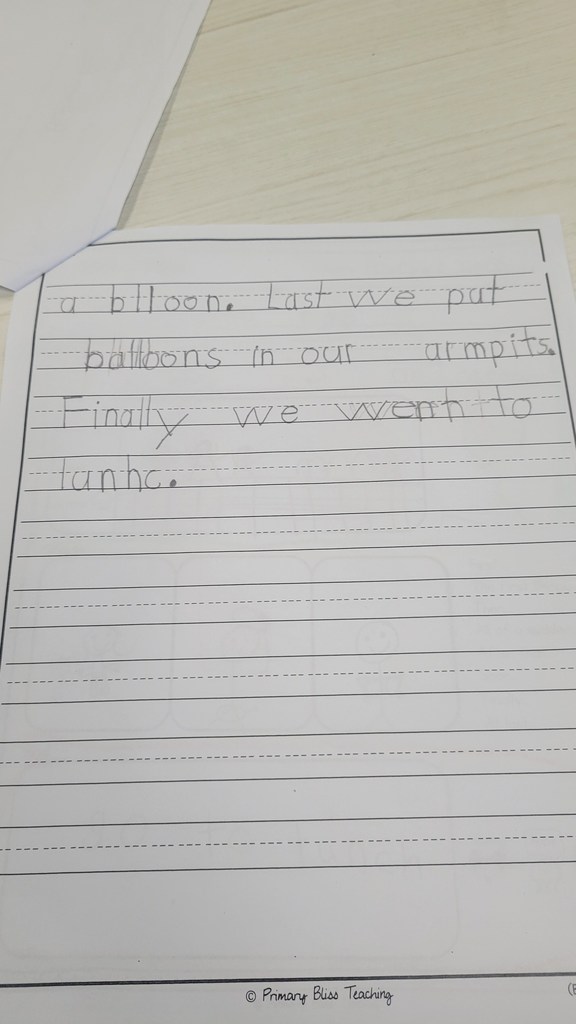 a blloon. Last we put
balloons in our armpits.
Finally we wenh to
lanhc.
© Primary Bliss Teaching